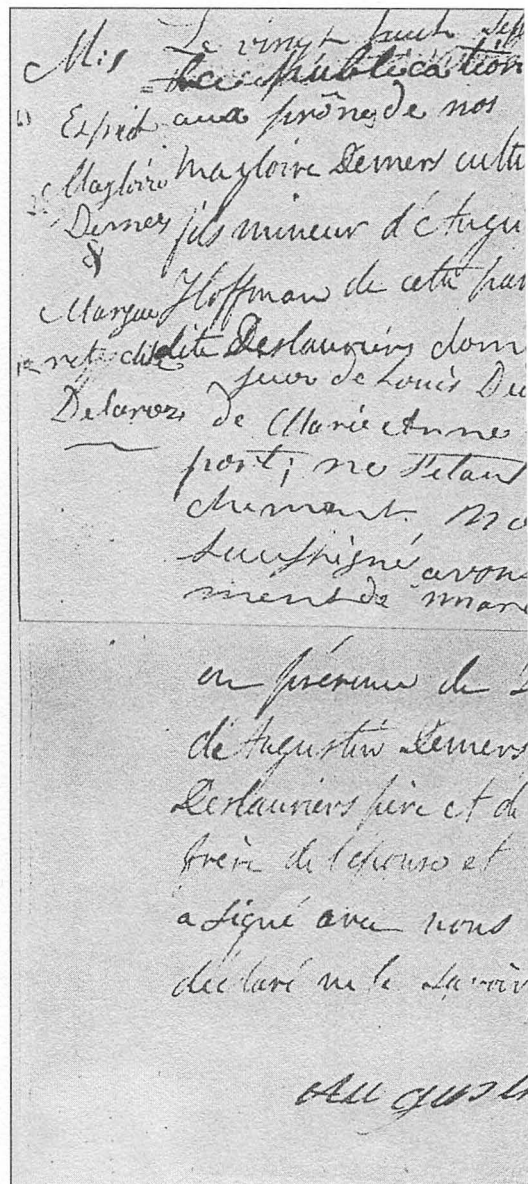 M.is
Esprit
Magloire
Demers
&
Margue
rite dite
Le vingt huit Sep
la publication
aux prônes de nos
Magloire Demers culti
fils mineur d'Augu
Hoffman de cette par
dite Deslauriers dom
de Louis
de Marie Anne
port; ne s'etant
chement. No
Soussigné avons
ment de mare
en présence de
de Augustin Demers
Deslauriers père et de
frère de l'epouse et
a signé avec nous
déclaré ne le Savoir
Augustin